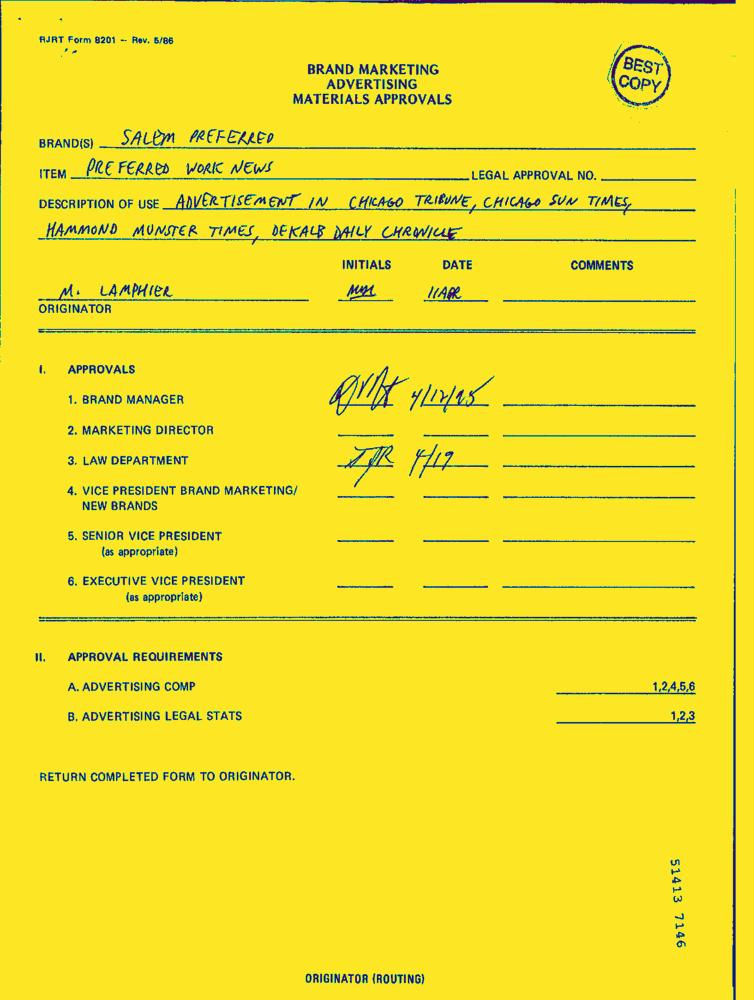 RJRT Form 8201 -- Rev. 5/86
BRAND MARKETING
ADVERTISING
MATERIALS APPROVALS
BEST
COPY
BRAND(S) SALEM PREFERRED
ITEM PREFERRED WORK NEWS LEGAL APPROVAL NO.
DESCRIPTION OF USE ADVERTISEMENT IN CHICAGO TRIBUNE, CHICAGO SUN TIMES,
HAMMOND MUNSTER TIMES, DEKALB DAILY CHRONICLE
INITIALS DATE COMMENTS
M. LAMPHIER 11APR
ORIGINATOR
I. APPROVALS
1. BRAND MANAGER
2. MARKETING DIRECTOR
3. LAW DEPARTMENT 4/19
4. VICE PRESIDENT BRAND MARKETING/
NEW BRANDS
5. SENIOR VICE PRESIDENT
(as appropriate)
6. EXECUTIVE VICE PRESIDENT
(as appropriate)
II. APPROVAL REQUIREMENTS
A. ADVERTISING COMP 1,2,4,5,6
B. ADVERTISING LEGAL STATS 1,2,3
RETURN COMPLETED FORM TO ORIGINATOR.
51413 7146
ORIGINATOR (ROUTING)